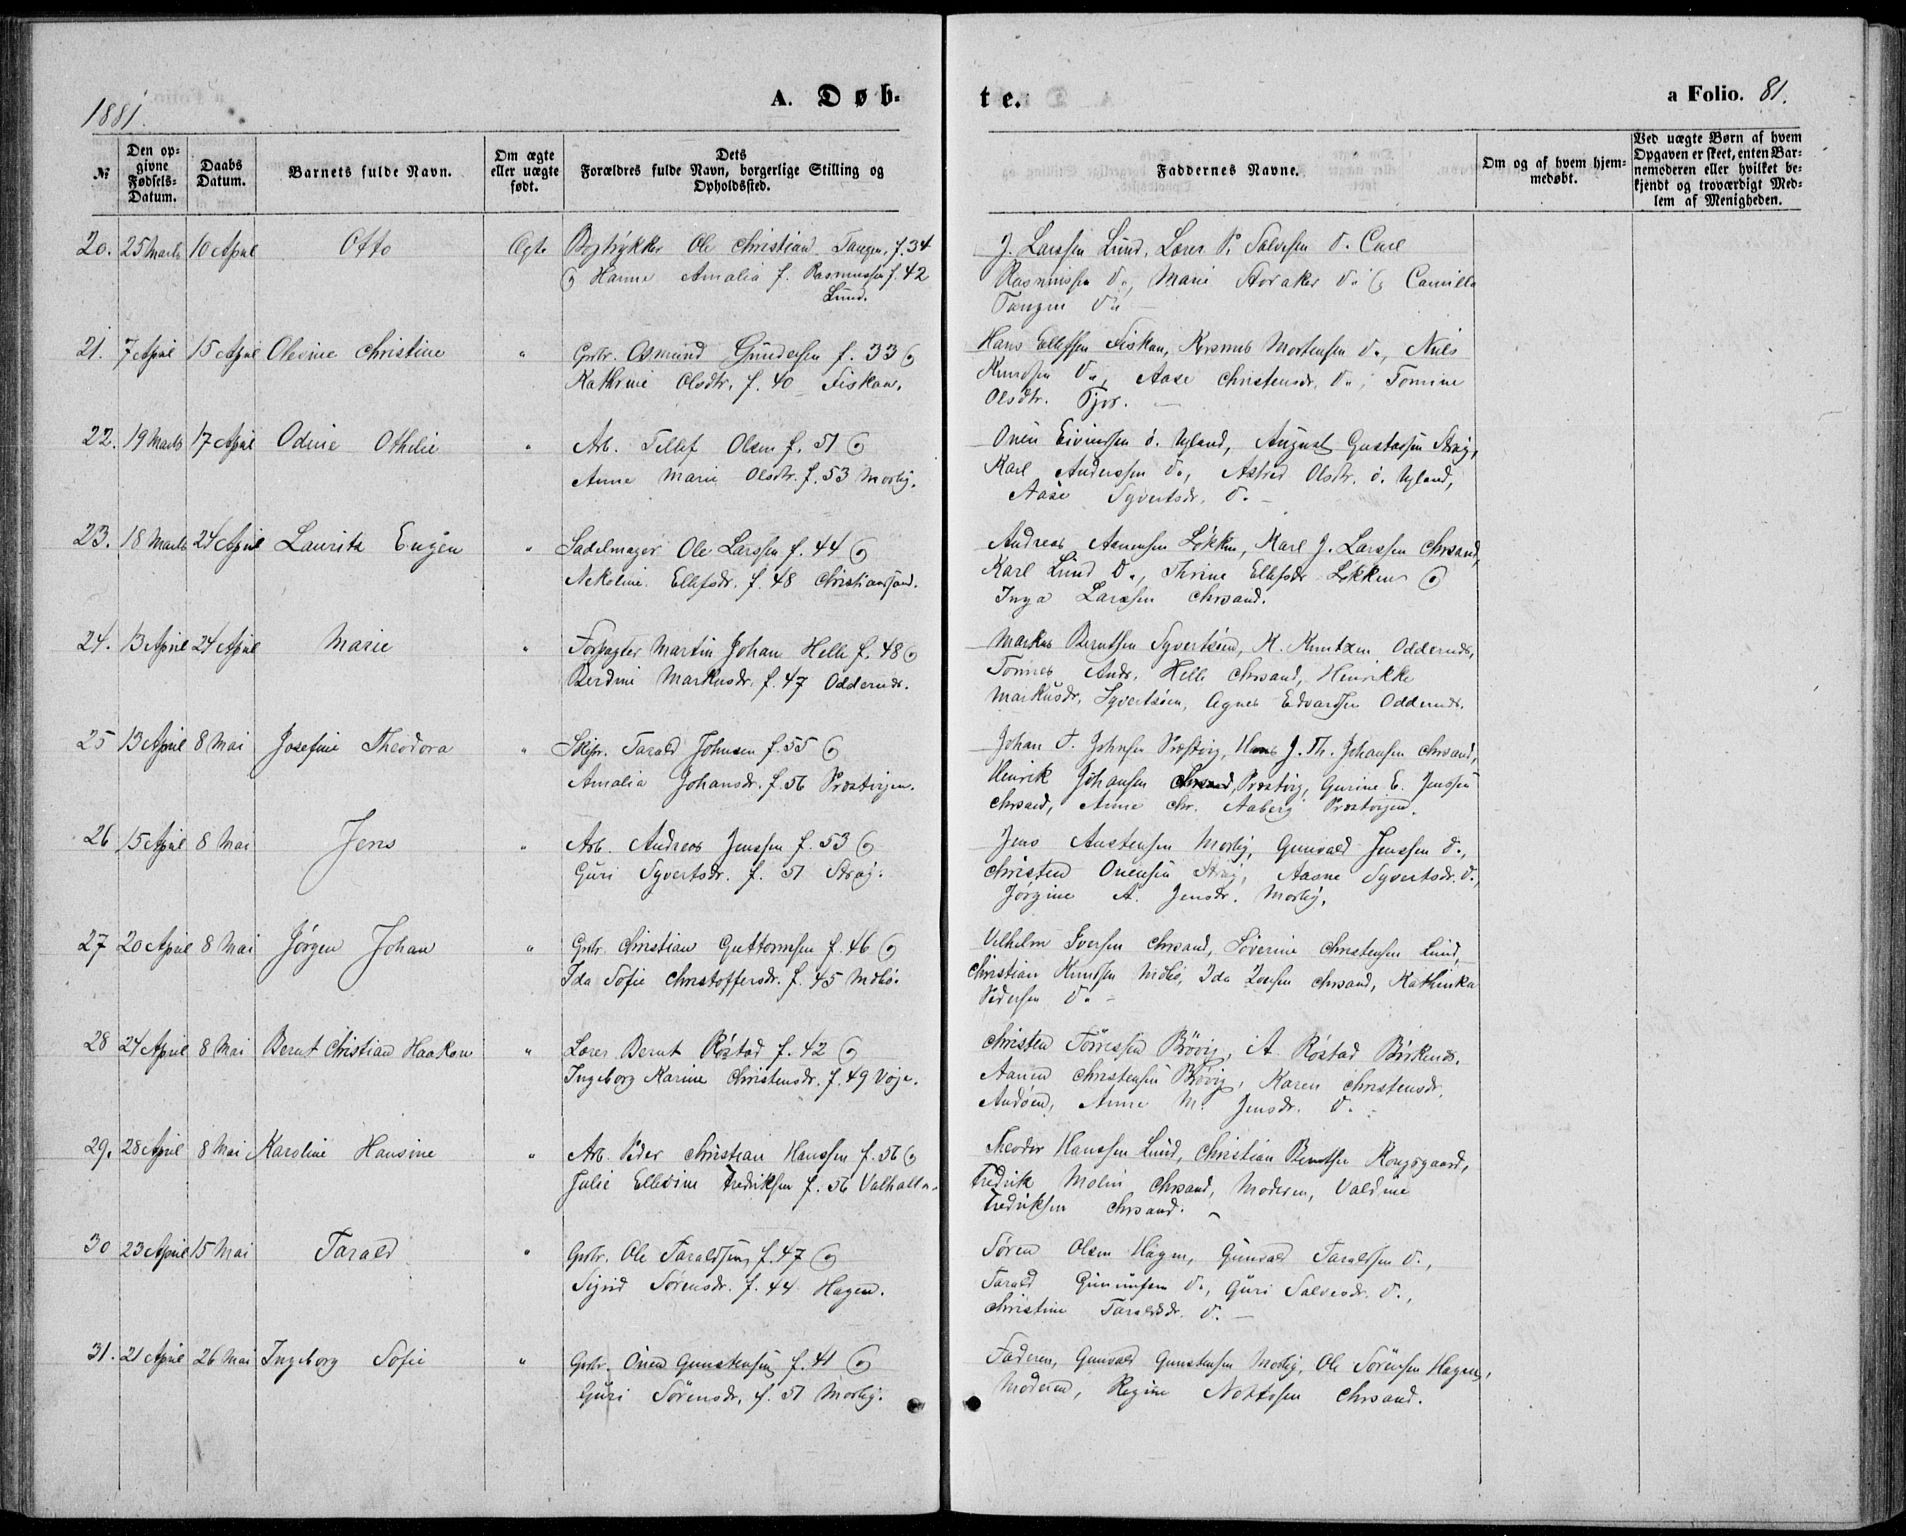 1881.
A. Døb-
te.
a Folio. 81.
№
Den op-
givne
Fødsels-
Datum.
Daabs
Datum.
Barnets fulde Navn.
Om ægte
eller uægte
født.
Dets
Forældres fulde Navn, borgerlige Stilling og
Opholdssted.
Faddernes Navne.
Om og af hvem hjem-
medøbt.
Ved uægte Børn af hvem
Opgaven er skeet, enten Bar-
nemoderen eller hvilket be-
kjendt og troværdigt Med-
lem af Menigheden.
20. 25 Marts 10 April Otto Ægte Bogtrykker Ole Christian Tangen, f. 34
& Hanne Amalia f. Rasmussen f. 42
Lund.
J. Larssen Lund, Lærer P. Salvesen do. Carl
Rasmussen do., Marie Storaker do. & Camilla
Tangen do. –
21. 7 April 15 April Olevine Christine " Grbr. Osmund Gundersen f. 33 &
Kathrine Olsdtr. f. 40 Fiskaa.
Hans Ellefsen Fiskaa, Morten­sen do., Niels
Knudsen do., Aase Christensdr. do., Tomine
Olsdtr. –
22. 19 Marts 17 April Odine Othilie " Arb. Tellef Olsen f. 51 &
Anne Marie Olsdtr. f. 53 Mosby.
Onen Eivindsen ö. Ugland, August Gustavsen Stray,
Karl Anderssen do., Astrid Olsdtr. ö. Ugland,
Aase Syvertsdr. do. –
23. 18 Marts 24 April Lauritz Eugen " Sadelmager Ole Larssen f. 44 &
Nekoline Ellefsdr. f. 48 Christianssand.
Andreas Aanensen Løkken, Karl J. Larssen Chrsand,
Karl Lund do., Thrine Ellefsdr. Løkken &
Inga Larssen Chrsand.
24. 13 April 24 April Marie " Forpagter Martin Johan Helle f. 48 &
Berdine Markusdr. f. 47 Oddernes.
Markus Berntsen Syvertsøen, K. Knutzen Oddernes,
Tønnes Andr. Helle Chrsand, Henrikke
Markusdr. Syvertsøen, Agnes Edvardsen Oddernes.
25 13 April 8 Mai Josefine Theodora " Skipr. Tarald Johnsen f. 55 &
Amalia Johansdr. f. 56 Præstvigen.
Johan T. Johnsen Præstvig, Hans J. Th. Johansen Chrsand,
Henrik Johansen Præstvig, Gurine E. Jenssen
Chrsand, Anne Chr. Aaberg Præstvigen.
26 15 April 8 Mai Jens " Arb. Andreas Jenssen f. 53 &
Guri Syvertsdr. f. 51 Stray.
Jens Austensen Mosby, Gunvald Jenssen do.,
Christen Onensen Stray, Aasne Syvertsdr. do.,
Jørgine A. Jensdr. Mosby.
27 20 April 8 Mai Jørgen Johan " Grbr. Christian Guttormsen f. 46 &
Ida Sofie Christoffersdr. f. 45 Mebø.
Vilhelm Iversen Chrsand, Severine Christensen Lund,
Christian Knutsen Mebø, Ida Chrsand, Kathinka
Pedersen do. –
28 24 April 8 Mai Bernt Christian Haakon " Lærer Bernt Røstad f. 42 &
Ingeborg Karine Christensdr. f. 49 Voje.
Christen Tønnessen Brövig, A. Røstad Birkenes,
Aanen Christensen Brövig, Karen Christensdr.
Andøen, Anne M. Jensdr. do. –
29. 28 April 8 Mai Karoline Hansine " Arb. Peder Christian Hanssen f. 56 &
Julie Ellevine Fredriksen f. 56 Valhalla.
Theodor Hanssen Lund, Christian Berntsen Kongsgaard,
Fredrik Molin Chrsand, Moderen, Valdine
Fredriksen Chrsand.
30 23 April 15 Mai Tarald " Grbr. Ole Taraldsen f. 47 &
Sigrid Sørensdr. f. 44 Hagen.
Søren Olsen Hagen, Gunvald Taraldsen do.,
Tarald Gunundsen do., Guri Salvesdr. do.,
Christine Taraldsdr. do. –
31. 21 April 26 Mai Ingeborg Sofie " Grbr. Onen Gunstensen f. 41 &
Guri Sørensdr. f. 51 Mosby.
Faderen, Gunvald Gunstensen Mosby, Ole Sörensen Hagen,
Moderen, Regine Nottosen Chrsand.